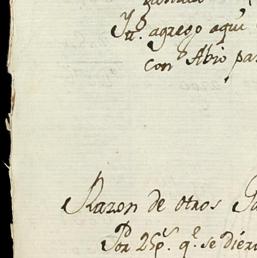 Yt. agrego aqui
con Abio pa
Razon de otros
Por 25p.s q.e se diero